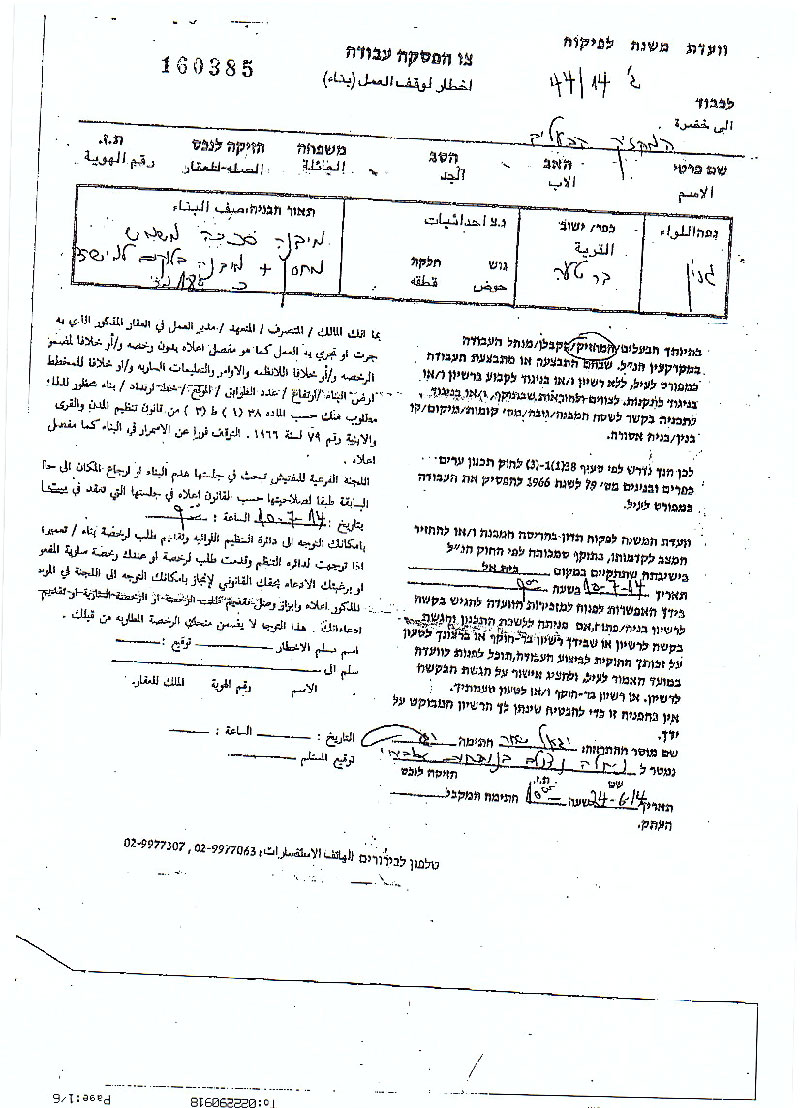 וועדת משנה לפיקוח
צו הפסקת עבודה
160385
اخطار لوقف العمل (بناء)
ג' 44/14
לכבוד
الى حضرة
שם פרטי האב הסב משפחה הזיקה לנכס ת.ז.
الاسم الاب الجد العائلة الصلة العقار رقم الهوية
נפה/اللواء כפר/ ישוב נ.צ احداثيات תאור הבניה/صيف البناء
ג'נין القرية
ברטעה גוש חלקה
حوض قطعة
מחסן + מיבנה
בהיותך הבעלים/המחזיק/הקבלן/מנהל העבודה
במקרקעין הנ"ל, שבהם התבצעה או מתבצעת העבודה
כמפורט לעיל, ללא רשיון ו/או בניגוד לקבוע ברשיון ו/או
בניגוד לתקנות, לצווים ולהוראות שבתוקף, ו/או בניגוד
לתכניה בקשר לשטח המבנה/גובה/מס' קומות/מיקום/קו
בנין/בניה אסורה.
לכן הנך נדרש לפי סעיף 38(1)-(3) לחוק תכנון ערים
כפרים ובנינים מס' 79 לשנת 1966 להפסיק את העבודה
כמפורט לעיל.
וועדת המשנה לפקוח תדון בהריסת המבנה ו/או להחזיר
המצב לקדמותו, בתוקף סמכותה לפי החוק הנ"ל
בישיבתה שתתקיים במקום בית אל
תאריך 10-7-14 בשעה 9:00
בידך האפשרות לפנות למזכירות הוועדה להגיש בקשה
לרשיון בניה/פתוח, אם פניתה ללשכת התכנון והגשת
בקשה לרשיון או שבידך רשיון בר-תוקף או ברצונך לטעון
על זכותך החוקית לביצוע העבודה, תוכל לפנות לוועדה
במועד האמור לעיל, ולהציג אישור על הגשת הבקשה
לרשיון, או רשיון בר-תוקף ו/או לטעון טענותיך.
אין בהפניה זו כדי להבטיח שינתן לך הרשיון המבוקש על
ידך.
שם מוסר ההתראה: יגאל חתימה
נמסר ל
ת.ז. זיקה לנכס
תאריך 24-6-14 שעה 10:00 חתימת המקבל
העתק.
بما انك المالك / المتصرف / المتعهد / مدير العمل في العقار المذكور الذي به
جرت او تجري به العمل كما هو مفصل اعلاه بدون رخصه و/أو خلافا للمفصل
الرخصه و/أو خلافا للانظمه والاوامر والتعليمات الساريه و/او خلافا للمخطط
ارض البناء / ارتفاع / عدد الطوابق / الموقع / خط ارتداد / بناء محظور لذلك
مطلوب منك حسب الماده ٣٨ (١) ط (٣) من قانون تنظيم المدن والقرى
والابنية رقم ٧٩ لسنة ١٩٦٦ التوقف فورا عن الاستمرار في البناء كما مفصل
اعلاه .
اللجنة الفرعية للتفتيش تبحث في جلستها هدم البناء او ارجاع المكان الى حاله
السابقة طبقا لصلاحيتها حسب القانون اعلاه في جلستها التي تنعقد في بيت ايل
بتاريخ : 10-7-14 الساعة : 9:00
بامكانك التوجه الى دائرة التنظيم اللوائيه وتقديم طلب لرخصة بناء / تعمير،
اذا توجهت لدائره التنظيم وقدمت طلب لرخصة او عندك رخصة سارية المفعول
او برغبتك الادعاء بحقك القانوني لإنجاز بامكانك التوجه الى اللجنة في الموعد
المذكور اعلاه وابراز وصل تقديم طلب الرخصة او الرخصة السارية او تقديم
ادعاءاتك . هذا التوجه لا يضمن منحك الرخصة المطلوبه من قبلك .
اسم مسلم الاخطار توقيع :
سلم الى
الاسم رقم الهوية المالك للعقار.
التاريخ : الساعة :
توقيع المستلم
טלפון לבירורים الهاتف للاستفسارات: 02-9977063 , 02-9977307
Page:1/6 To:022290918